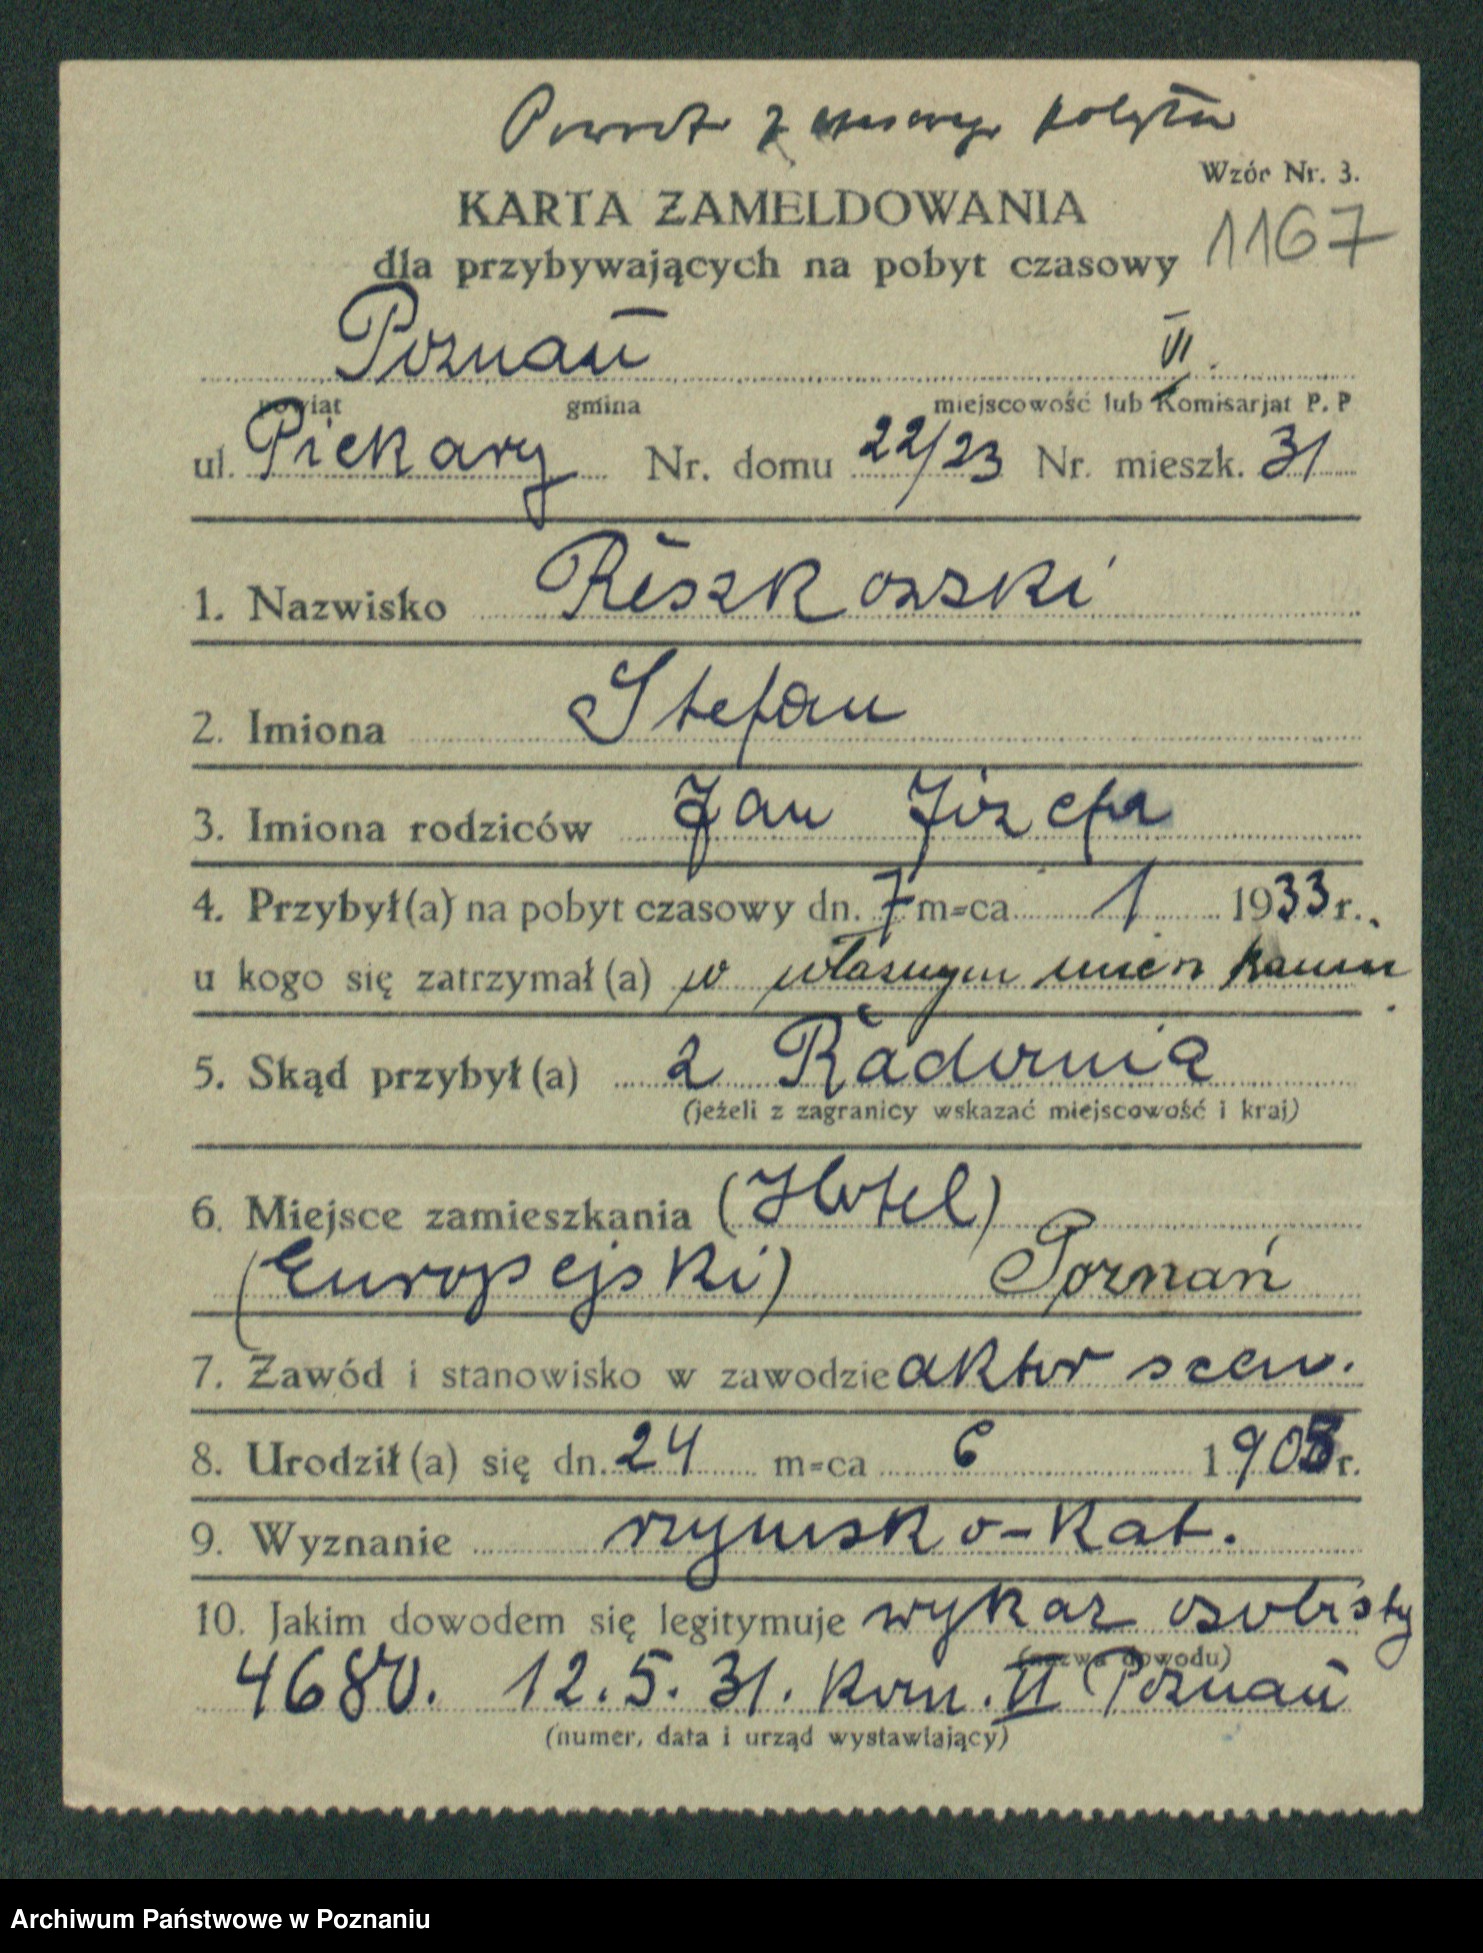 Powrót z czasowego pobytu
Wzór Nr. 3.
KARTA ZAMELDOWANIA
1167
dla przybywających na pobyt czasowy
Poznań VI.
powiat gmina miejscowość lub Komisarjat P. P
ul. Piekary Nr. domu 22/23 Nr. mieszk. 31
1. Nazwisko Reszkowski
2. Imiona Stefan
3. Imiona rodziców Jan Józefa
4. Przybył(a) na pobyt czasowy dn. 7 m-ca 1 1933 r.
u kogo się zatrzymał(a) w własnym
5. Skąd przybył(a) z Radomia
(jeżeli z zagranicy wskazać miejscowość i kraj)
6. Miejsce zamieszkania (Hotel)
(Europejski) Poznań
7. Zawód i stanowisko w zawodzie aktor scen.
8. Urodził(a) się dn. 24 m-ca 6 1905 r.
9. Wyznanie rzymsko-kat.
10. Jakim dowodem się legitymuje wykaz osobisty
(nazwa dowodu)
4680. 12.5.31. Kom. II Poznań
(numer, data i urząd wystawiający)
Archiwum Państwowe w Poznaniu